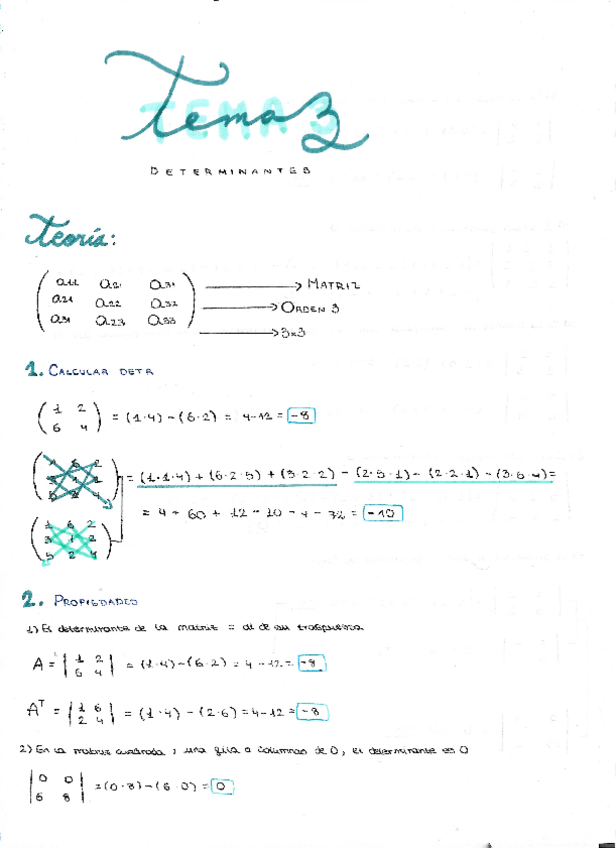 Tema 3
DETERMINANTES
Teoría:
a11 a21 a31 → MATRIZ
a21 a22 a32 → ORDEN 3
a31 a23 a33 → 3x3
1. CALCULAR DETR
( 1 2 / 6 4 ) = (1·4) - (6·2) = 4-12 = -8
= (1·1·4) + (6·2·5) + (3·2·2) - (2·5·1) - (2·2·1) - (3·6·4) =
( 1 6 2 / 3 1 2 / 5 2 4 )
= 4 + 60 + 12 - 10 - 4 - 72 = -10
2. PROPIEDADES
1) El determinante de la matriz = al de su traspuesta
A = | 1 2 / 6 4 | = (1·4) - (6·2) = 4 - 12 = -8
Aᵀ = | 1 6 / 2 4 | = (1·4) - (2·6) = 4-12 = -8
2) En la matriz cuadrada, una fila o columnas de 0, el determinante es 0
| 0 0 / 6 8 | = (0·8) - (6·0) = 0